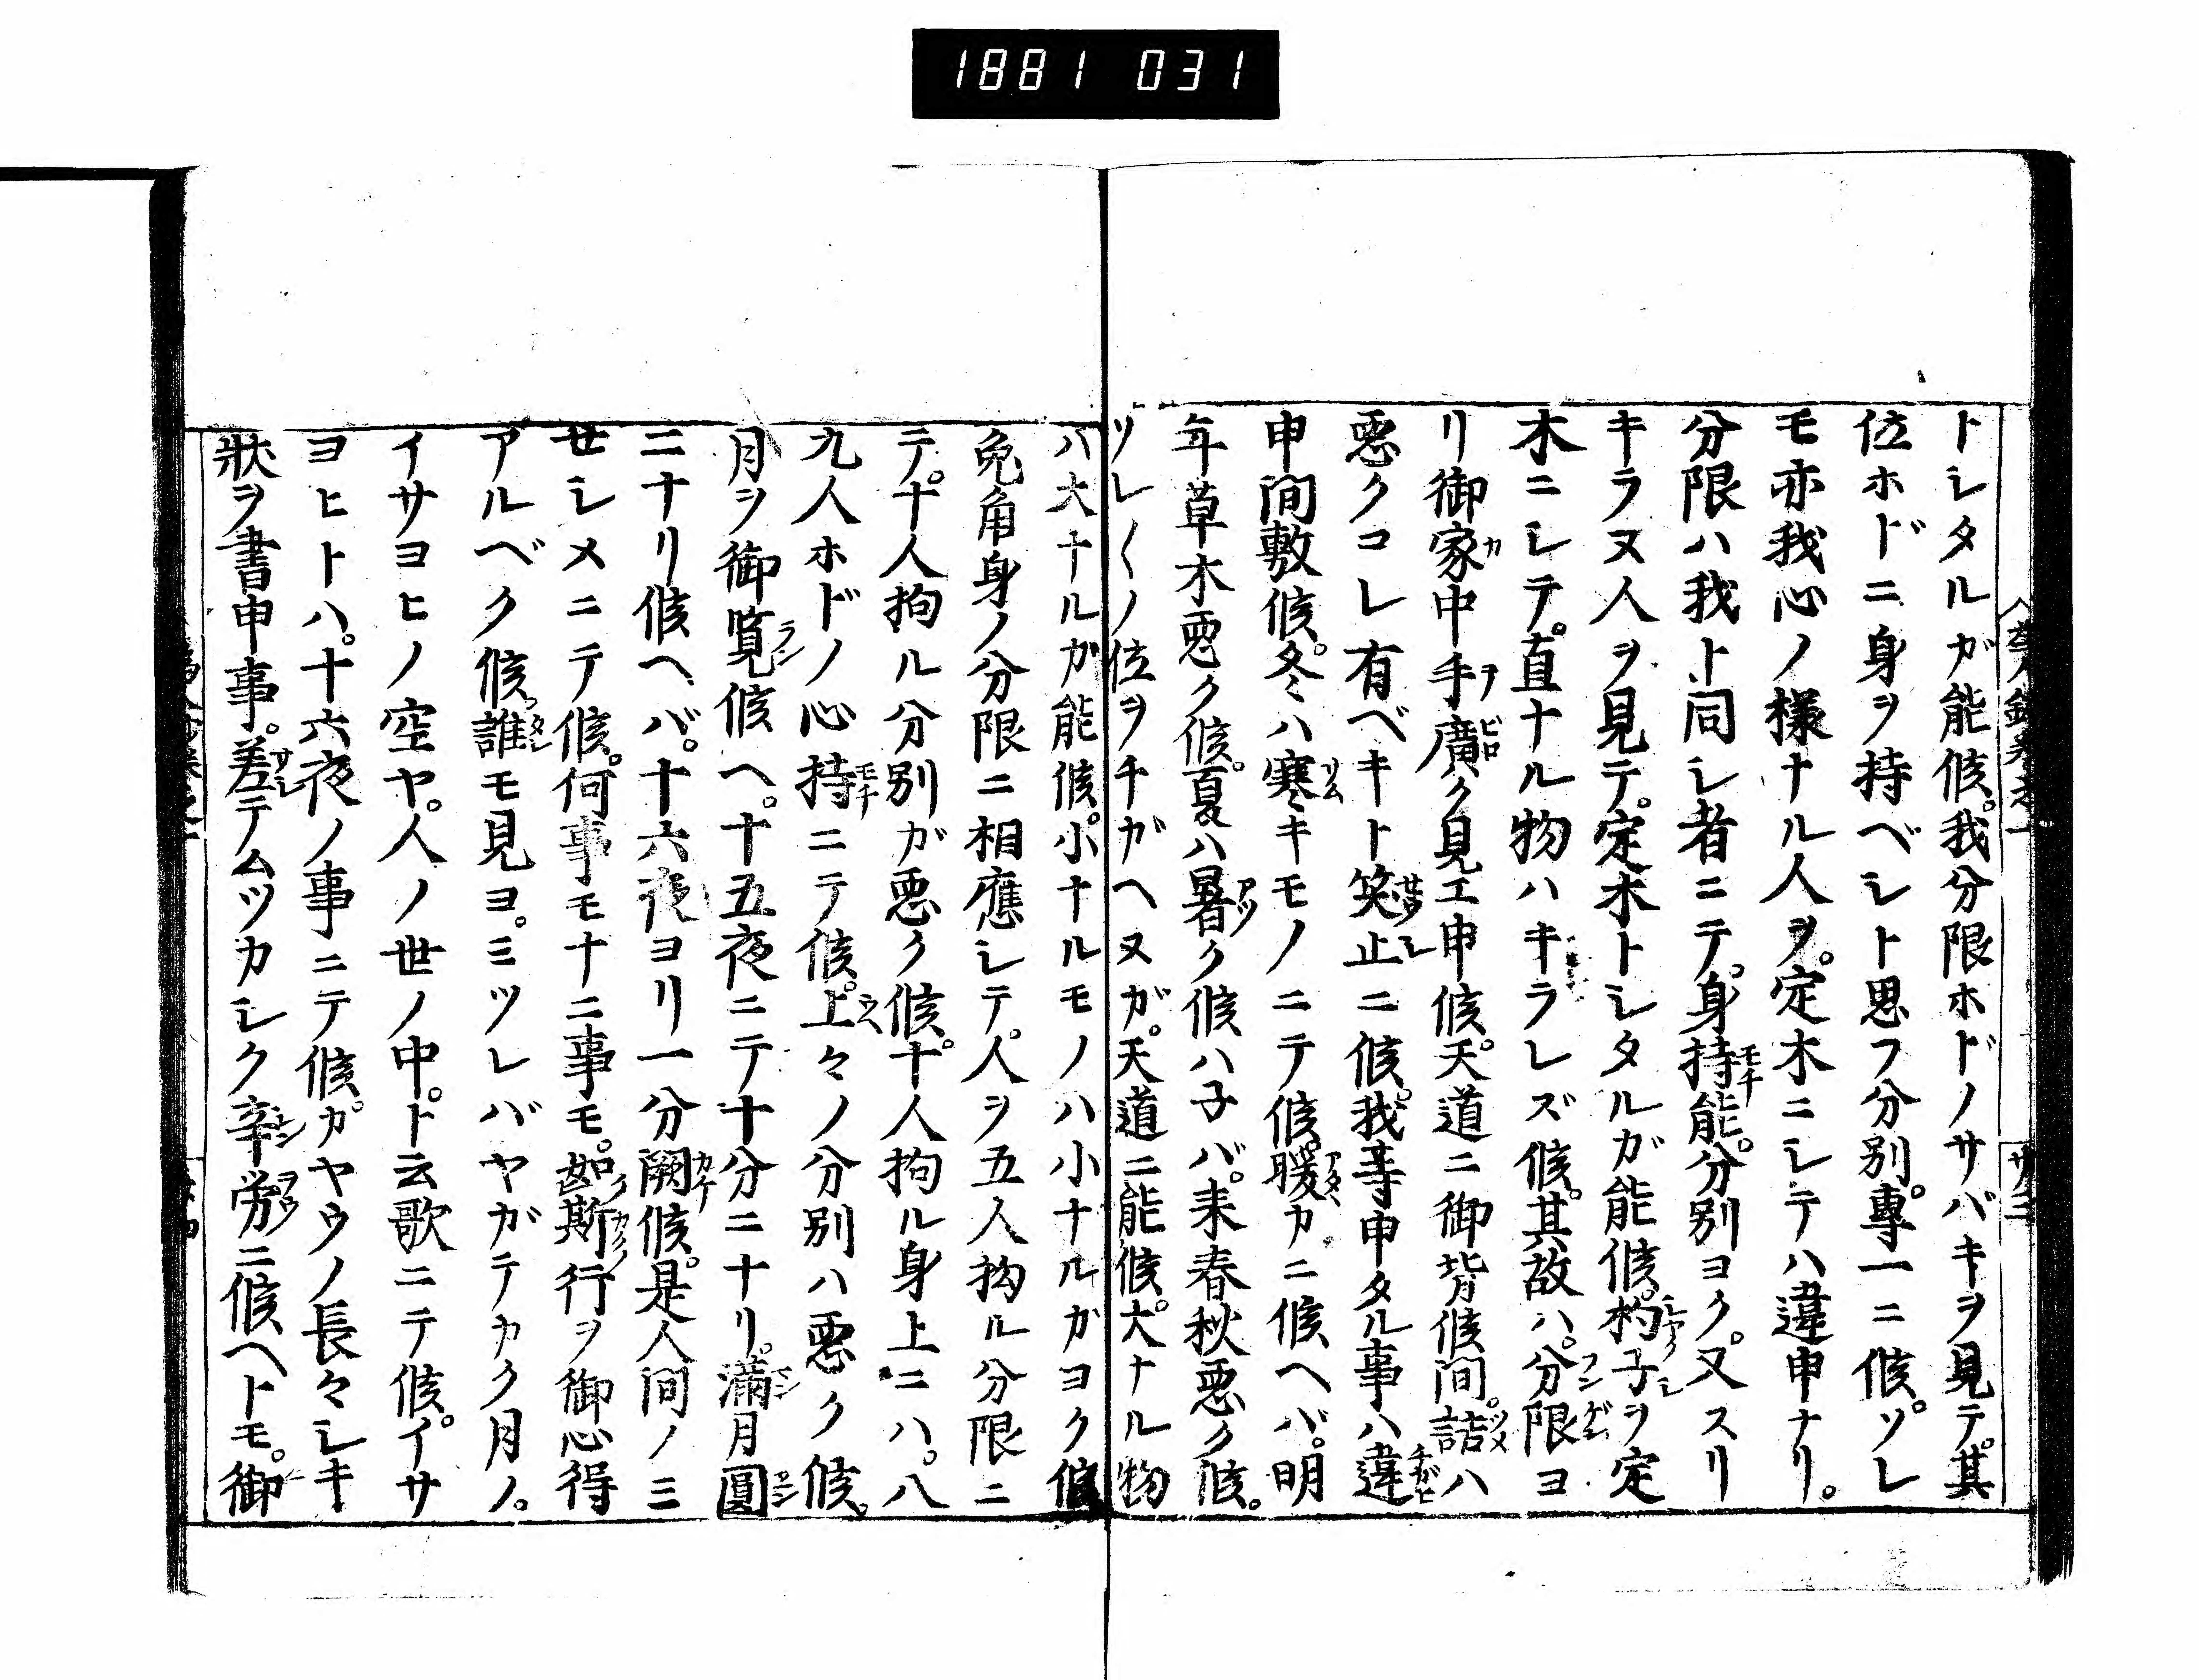 1881 031
トシタルガ能候。我分限ホドノサバキヲ見テ。其
位ホドニ身ヲ持ベシト思フ分別。專一ニ候。ソレ
モ亦我心ノ様ナル人ヲ。定木ニシテハ違申ナリ。
分限ハ我ト同シ者ニテ。身持能。分別ヨク。又スリ
キラヌ人ヲ見テ。定木トシタルガ能候。杓子ヲ定
木ニシテ。直ナル物ハキラレズ候。其故ハ。分限ヨ
リ御家中手廣ク見エ申候。天道ニ御背候間。詰ハ
悪クコレ有ベキト笑止ニ候。我等申タル事ハ違
申間敷候。冬ハ寒キモノニテ候。暖カニ候ヘバ。明
年草木悪ク候。夏ハ暑ク候ハ子バ。来春秋悪ク候。
ソレ〳〵ノ位ヲチガヘヌガ。天道ニ能候。大ナル物
ハ大ナルガ能候。小ナルモノハ小ナルガヨク候
兔角身ノ分限ニ相應シテ。人ヲ五人拘ル分限ニ
テ。十人拘ル分別ガ悪ク候。十人拘ル身上ニハ。八
九人ホドノ心持ニテ候。上々ノ分別ハ悪ク候。
月ヲ御覧候ヘ。十五夜ニテ十分ニナリ。滿月圓
ニナリ候ヘバ。十六夜ヨリ一分闕候。是人間ノ三
世シメニテ候。何事モナニ事モ。如斯行ヲ御心得
アルベク候。誰モ見ヨ。ミツレバヤガテカク月ノ。
イサヨヒノ空ヤ。人ノ世ノ中。ト云歌ニテ候。イサ
ヨヒトハ。十六夜ノ事ニテ候。カヤウノ長々シキ
狀ヲ書申事。差テムツカシク辛労ニ候ヘトモ。御